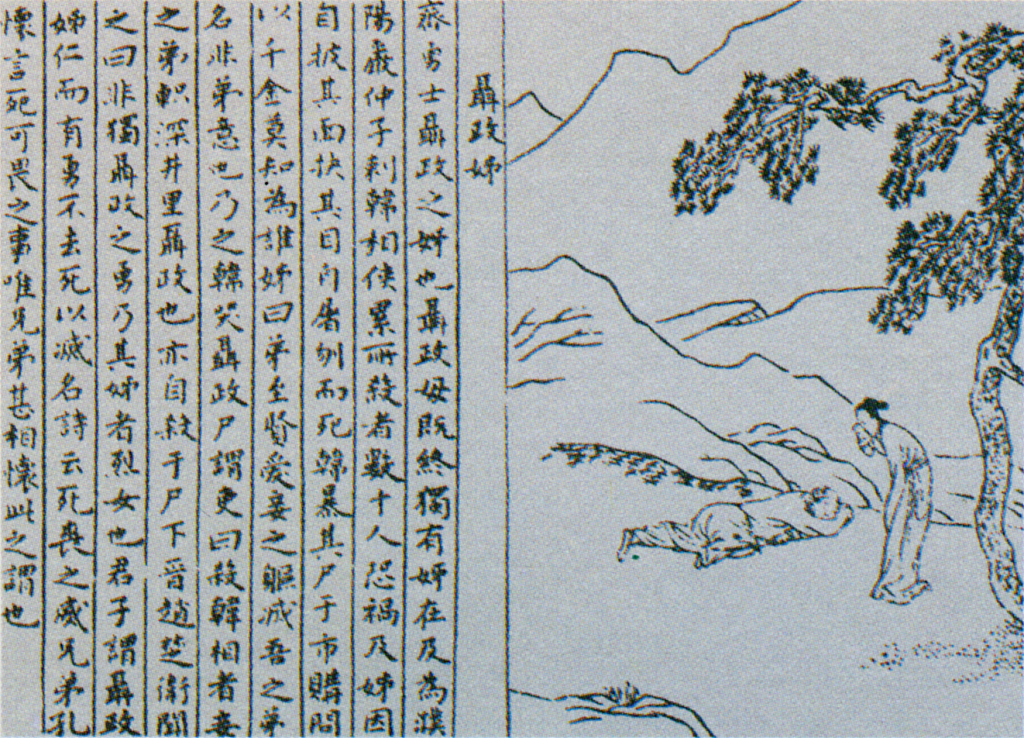 聶政姊
齊勇士聶政之姊也聶政母既終獨有姊在及為濮
陽嚴仲子刺韓相俠累所殺者數十人恐禍及姊因
自披其面抉其目自屠刎而死韓暴其尸于市購問
以千金莫知為誰姊曰弟至賢愛妾之軀滅吾之弟
名非弟意也乃之韓哭聶政尸謂吏曰殺韓相者妾
之弟軹深井里聶政也亦自殺于尸下晉趙楚衛聞
之曰非獨聶政之勇乃其姊者烈女也君子謂聶政
姊仁而有勇不去死以滅名詩云死喪之威兄弟孔
懷言死可畏之事唯兄弟甚相懷此之謂也